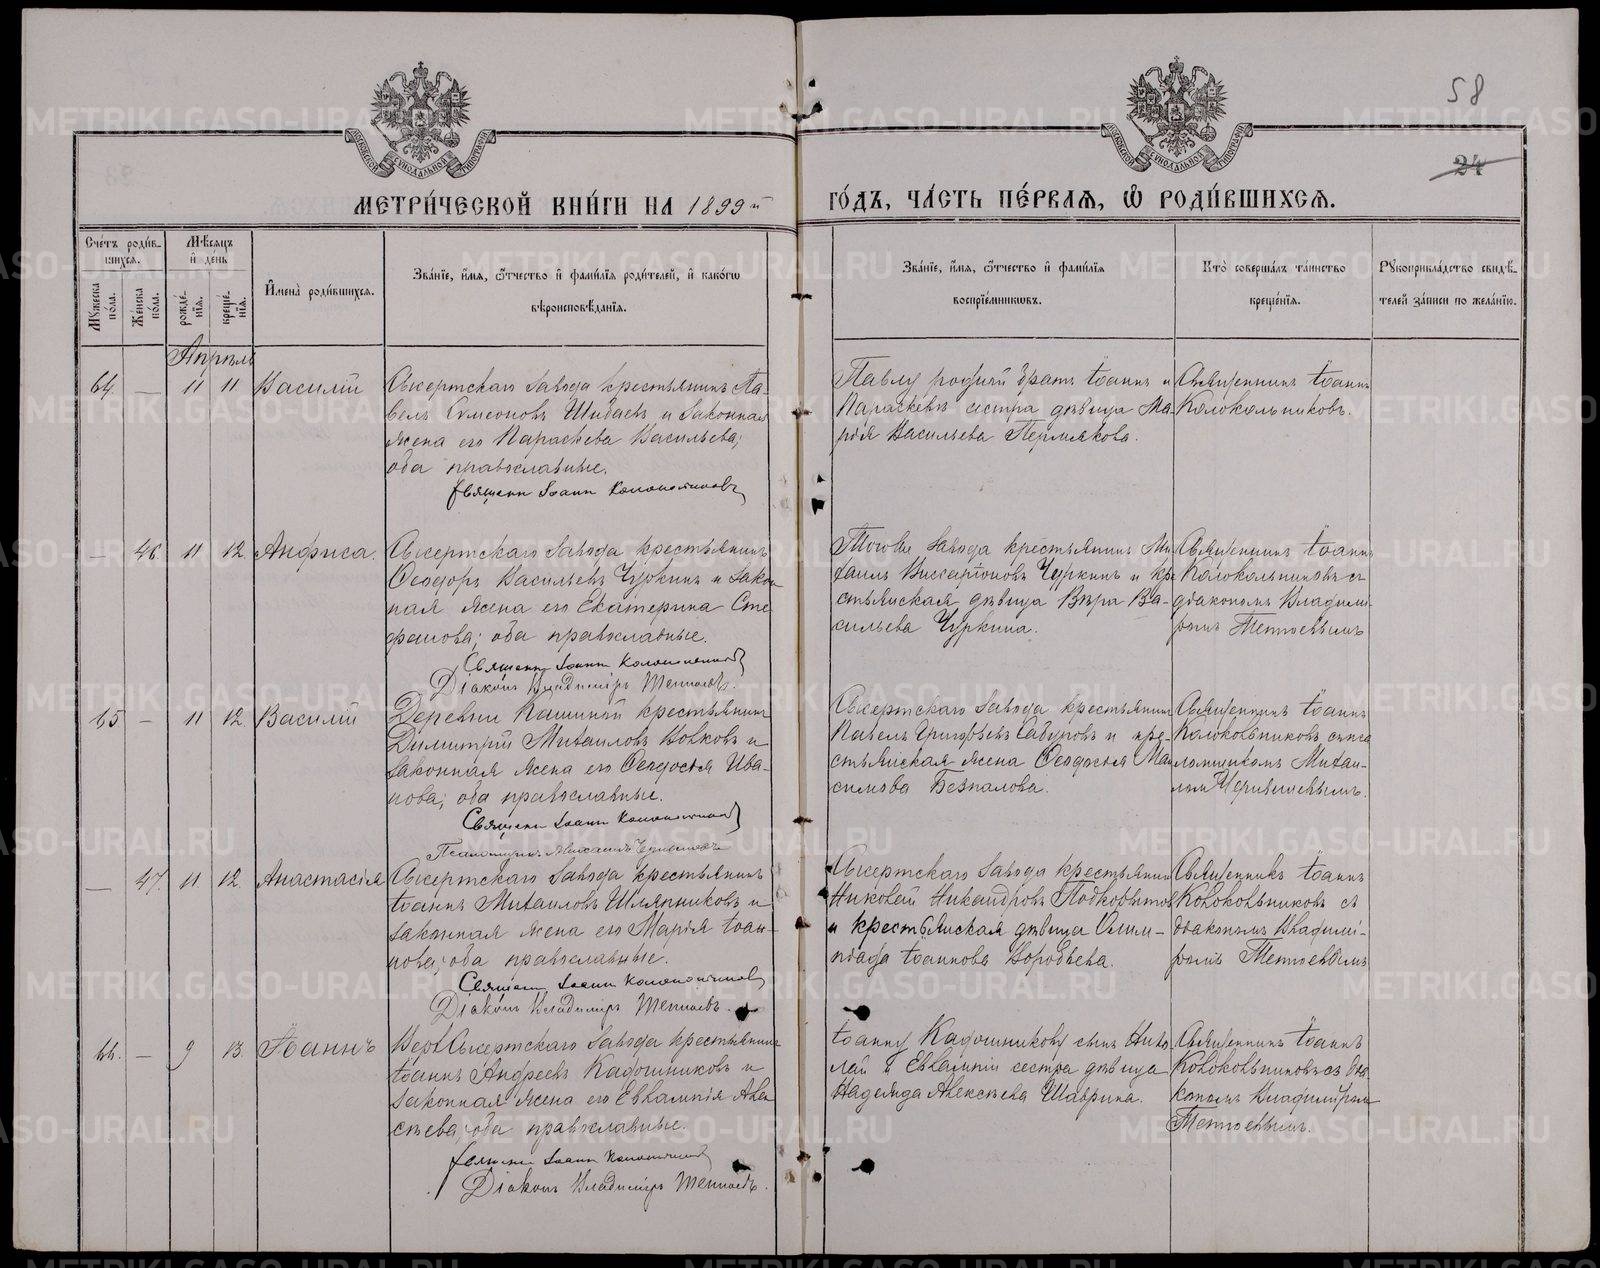 58
24
МОСКОВСКОЙ СѴНОДАЛЬНОЙ ТИПОГРАФІИ
МОСКОВСКОЙ СѴНОДАЛЬНОЙ ТИПОГРАФІИ
МЕТРИ́ЧЕСКОЙ КНИ́ГИ НА 1899й
ГО́ДЪ, ЧА́СТЬ ПЕ́РВАѦ, Ѿ РОДИ́ВШИХСѦ.
Сче́тъ роди́в-
шихсѧ.
Мꙋ́жеска по́ла.
Же́нска по́ла.
Мѣ́сѧцъ и҆ де́нь
рожде́-
нїѧ.
креще́-
нїѧ.
И҆мена̀ роди́вшихсѧ.
Зва́нїе, и҆́мѧ, ѻ҆́тчество и҆ фами́лїѧ роди́телей, и҆ како́гѡ
вѣроисповѣ́данїѧ.
Зва́нїе, и҆́мѧ, ѻ҆́тчество и҆ фами́лїѧ
воспрїе́мникѡвъ.
Кто̀ соверша́лъ та́инство
креще́нїѧ.
Рꙋкоприкла́дство свидѣ́-
телей за́писи по жела́нїю.
Апрѣль
64. — 11 11 Василій
Сысертскаго завода крестьянинъ Па-
велъ Симеоновъ Шибаевъ и законная
жена его Параскева Васильева;
оба православные.
Священ. Іоаннъ Колокольниковъ
Павлу родной братъ Іоаннъ и
Параскевѣ сестра дѣвица Ма-
рія Васильева Пермякова.
Священникъ Іоаннъ
Колокольниковъ.
— 46. 11 12. Анфиса.
Сысертскаго завода крестьянинъ
Ѳеодоръ Васильевъ Чуркинъ и закон-
ная жена его Екатерина Сте-
фанова; оба православные.
Священ. Іоаннъ Колокольниковъ
Діаконъ Владиміръ Тепловъ.
Того же завода крестьянинъ Ми-
хаилъ Виссаріоновъ Чуркинъ и кре-
стьянская дѣвица Вѣра Ва-
сильева Чуркина.
Священникъ Іоаннъ
Колокольниковъ съ
діакономъ Владимі-
ромъ Тепловымъ
65 — 11 12. Василій
Деревни Кашиной крестьянинъ
Димитрій Михаиловъ Волковъ и
законная жена его Ѳеодосія Ива-
нова; оба православные.
Священ. Іоаннъ Колокольниковъ
Псаломщикъ Михаилъ
Сысертскаго завода крестьянинъ
Павелъ Григорьевъ Сабуровъ и кре-
стьянская жена Ѳеодосія Мак-
симова Безпалова.
Священникъ Іоаннъ
Колокольниковъ съ пса-
ломщикомъ Михаи-
ломъ
— 47. 11 12. Анастасія
Сысертскаго завода крестьянинъ
Іоаннъ Михаиловъ Шляпниковъ и
законная жена его Марія Іоан-
нова; оба православные.
Священ. Іоаннъ Колокольниковъ
Діаконъ Владиміръ Тепловъ.
Сысертскаго завода крестьянинъ
Николай Никандровъ Подкорытовъ
и крестьянская дѣвица Олим-
піада Іоаннова Воробьева.
Священникъ Іоаннъ
Колокольниковъ съ
діакономъ Владимі-
ромъ Тепловымъ
66. — 9 13. Іоаннъ
Верхсысертскаго завода крестьянинъ
Іоаннъ Андреевъ Кадошниковъ и
законная жена его Евлампія Алек-
сѣева; оба православные.
Священ. Іоаннъ Колокольниковъ
Діаконъ Владиміръ Тепловъ.
Іоанну Кадошникову сынъ Нико-
лай и Евлампіи сестра дѣвица
Надежда Алексѣева Шаврина.
Священникъ Іоаннъ
Колокольниковъ съ діа-
кономъ Владиміромъ
Тепловымъ.
METRIKI.GASO-URAL.RU